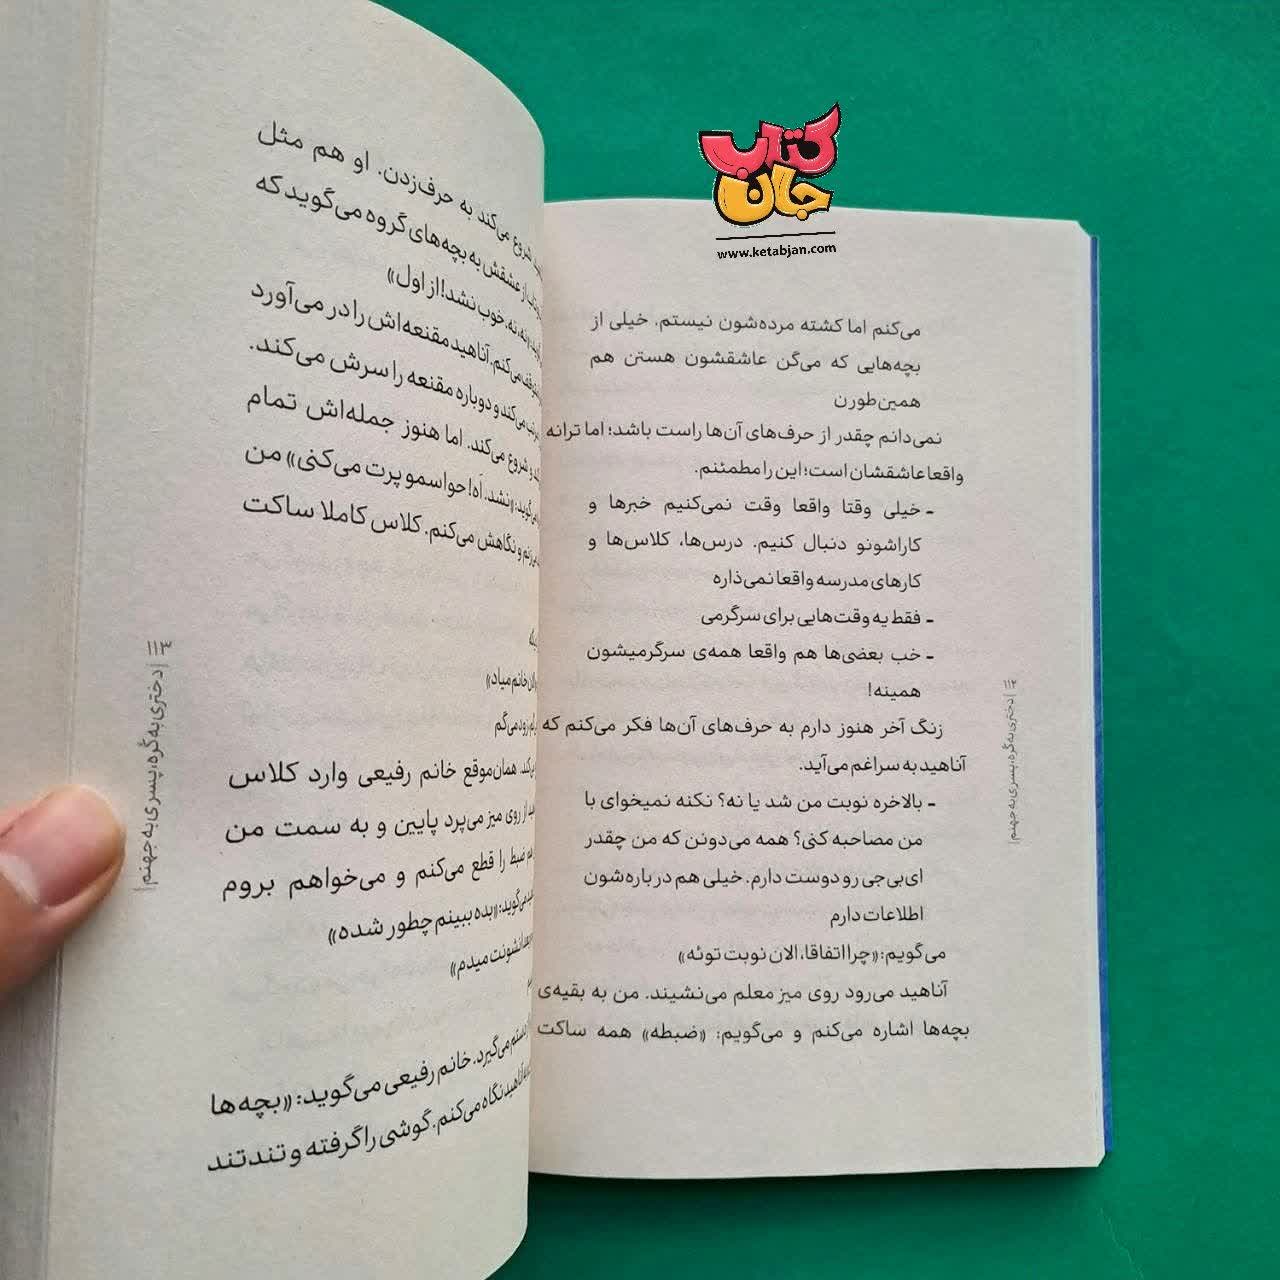 کتاب
جان
www.ketabjan.com
می‌کنم اما کشته مرده‌شون نیستم. خیلی از
بچه‌هایی که می‌گن عاشقشون هستن هم
همین‌طورن
نمی‌دانم چقدر از حرف‌های آن‌ها راست باشد؛ اما ترانه
واقعا عاشقشان است؛ این را مطمئنم.
- خیلی وقتا واقعا وقت نمی‌کنیم خبرها و
کاراشونو دنبال کنیم. درس‌ها، کلاس‌ها و
کارهای مدرسه واقعا نمی‌ذاره
- فقط یه وقت‌هایی برای سرگرمی
- خب بعضی‌ها هم واقعا همه‌ی سرگرمیشون
همینه!
زنگ آخر هنوز دارم به حرف‌های آن‌ها فکر می‌کنم که
آناهید به سراغم می‌آید.
- بالاخره نوبت من شد یا نه؟ نکنه نمیخوای با
من مصاحبه کنی؟ همه می‌دونن که من چقدر
ای‌بی‌جی رو دوست دارم. خیلی هم درباره‌شون
اطلاعات دارم
می‌گویم: «چرا اتفاقا، الان نوبت توئه»
آناهید می‌رود روی میز معلم می‌نشیند. من به بقیه‌ی
بچه‌ها اشاره می‌کنم و می‌گویم: «ضبطه» همه ساکت
۱۱۲ | دختری به گره، پسری به جهنم |
شروع می‌کند به حرف‌زدن. او هم مثل
از عشقش به بچه‌های گروه می‌گوید که
نه، نه، خوب نشد! از اول»
می‌کنم. آناهید مقنعه‌اش را در می‌آورد
می‌کند و دوباره مقنعه را سرش می‌کند.
و شروع می‌کند. اما هنوز جمله‌اش تمام
«نشد. اَه! حواسمو پرت می‌کنی» من
و نگاهش می‌کنم. کلاس کاملا ساکت
خانم میاد»
می‌گم
همان‌موقع خانم رفیعی وارد کلاس
از روی میز می‌پرد پایین و به سمت من
ضبط را قطع می‌کنم و می‌خواهم بروم
می‌گوید: «بده ببینم چطور شده»
نشونت میدم»
دستم می‌گیرد. خانم رفیعی می‌گوید: «بچه‌ها
نگاه می‌کنم. گوشی را گرفته و تند تند
۱۱۳ | دختری به گره، پسری به جهنم |